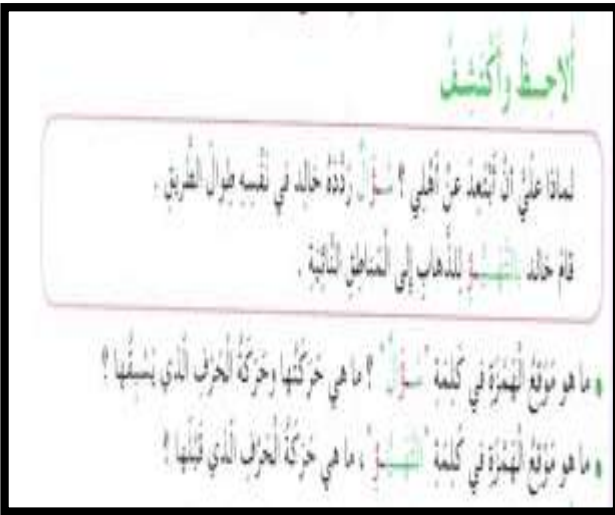 أُلاحِظُ وأَكْتَشِفُ
لماذا عَلَيَّ أنْ أَبْتَعِدَ عَنْ أَهْلِي ؟ سُؤَالٌ رَدَّدَهُ خالد في نَفْسِهِ طِوالَ الطَّريقِ .
قامَ خالد للذَّهابِ إلى الْمَناطِقِ النَّائِيَةِ .
ما هو مَوْقِعُ الْهَمْزَةِ في كَلِمَةِ "سُؤَالٌ" ؟ ما هي حَرَكَتُها وحَرَكَةُ الْحَرْفِ الّذي يَسْبِقُها ؟
ما هو مَوْقِعُ الْهَمْزَةِ في كَلِمَةِ " "، ما هي حَرَكَةُ الْحَرْفِ الّذي قَبْلَها ؟